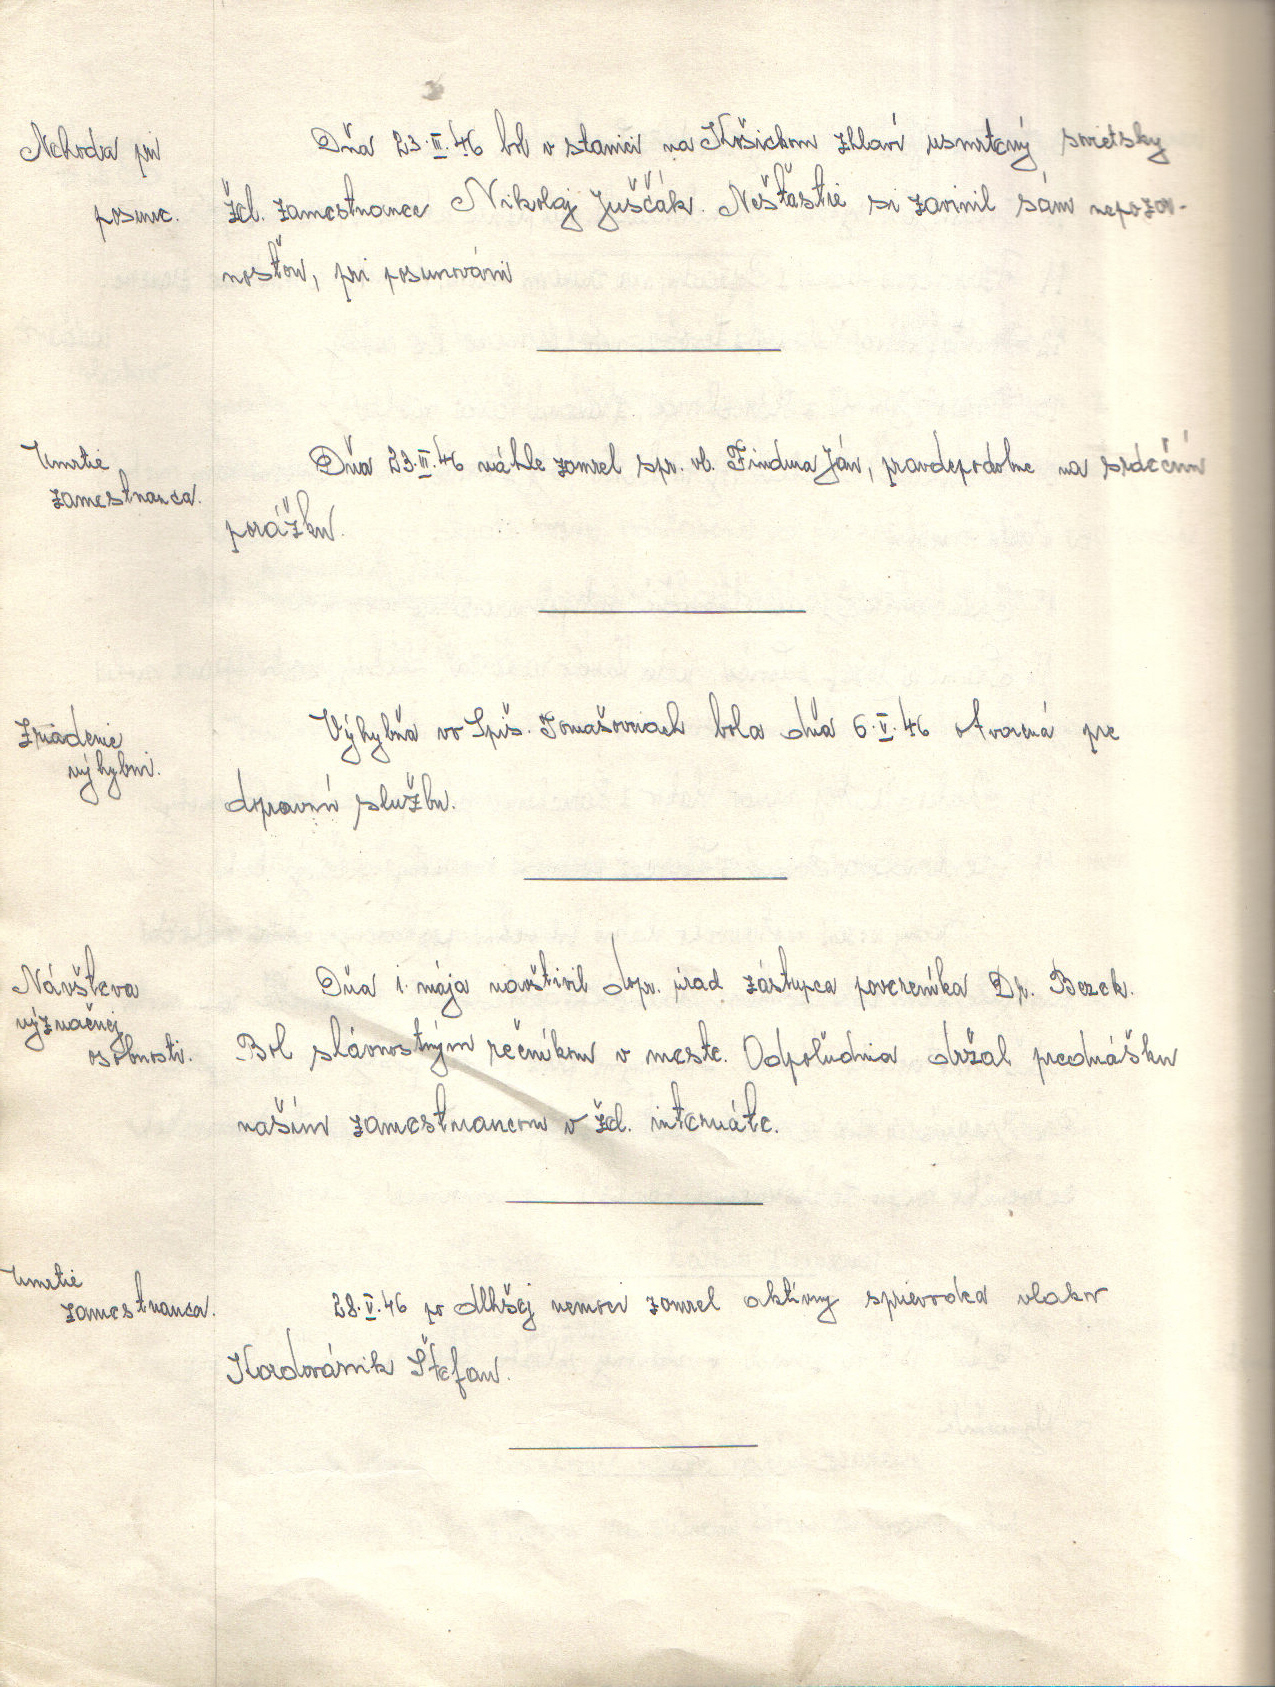 Nehoda pri
posune.
Dňa 23.III.46 bol v stanici na Košickom zhlaví usmrtený sovietsky
žel. zamestnanec Nikolaj Juščák. Nešťastie si zavinil sám nepozor-
nosťou, pri posunování
Úmrtie
zamestnanca.
Dňa 23.III.46 náhle zomrel spr. vl. Findura Ján, pravdepodobne na srdečnú
porážku.
Zriadenie
výhybni.
Výhybňa vo Spiš. Tomášovciach bola dňa 6.V.46 otvorená pre
dopravnú službu.
Návšteva
význačnej
osobnosti.
Dňa 1. mája navštívil dopr. úrad zástupca povereníka Dr. Bezek.
Bol slávnostným rečníkom v meste. Odpoľudnia držal prednášku
našim zamestnancom v žel. internáte.
Úmrtie
zamestnanca.
28.V.46 po dlhšej nemoci zomrel aktívny sprievodca vlakov
Kordovánik Štefan.